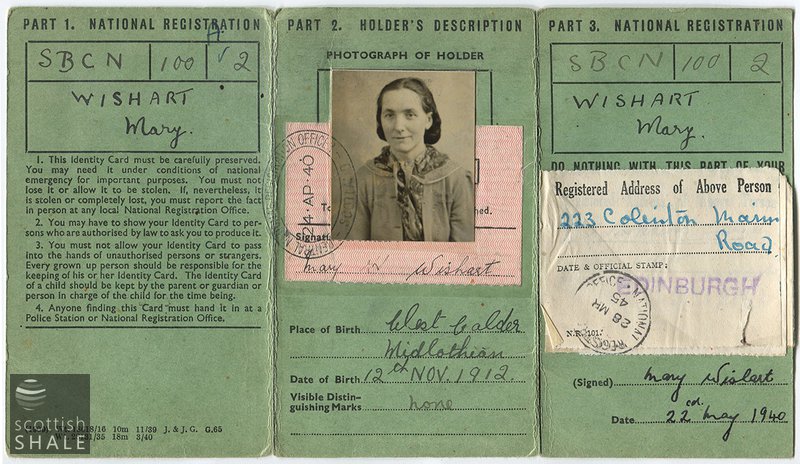 PART 1. NATIONAL REGISTRATION
SBCN 100 2
WISHART
Mary.
1. This Identity Card must be carefully preserved.
You may need it under conditions of national
emergency for important purposes. You must not
lose it or allow it to be stolen. If, nevertheless, it
is stolen or completely lost, you must report the fact
in person at any local National Registration Office.
2. You may have to show your Identity Card to per-
sons who are authorised by law to ask you to produce it.
3. You must not allow your Identity Card to pass
into the hands of unauthorised persons or strangers.
Every grown up person should be responsible for the
keeping of his or her Identity Card. The Identity Card
of a child should be kept by the parent or guardian or
person in charge of the child for the time being.
4. Anyone finding this Card must hand it in at a
Police Station or National Registration Office.
18/16 10m 11/39 J. & J.G. G.65
31/35 18m 3/40
scottish
SHALE
PART 2. HOLDER'S DESCRIPTION
PHOTOGRAPH OF HOLDER
24·AP·40
Mary W Wishart
Place of Birth West Calder
Midlothian
Date of Birth 12th NOV. 1912
Visible Distin-
guishing Marks none
PART 3. NATIONAL REGISTRATION
SBCN 100 2
WISHART
Mary.
DO NOTHING WITH THIS PART OF YOUR
Registered Address of Above Person
223 Colinton Mains
Road
DATE & OFFICIAL STAMP:
EDINBURGH
NATIONAL
28 MR
45
N.R. 101.
(Signed) Mary Wishart
Date 22nd May 1940